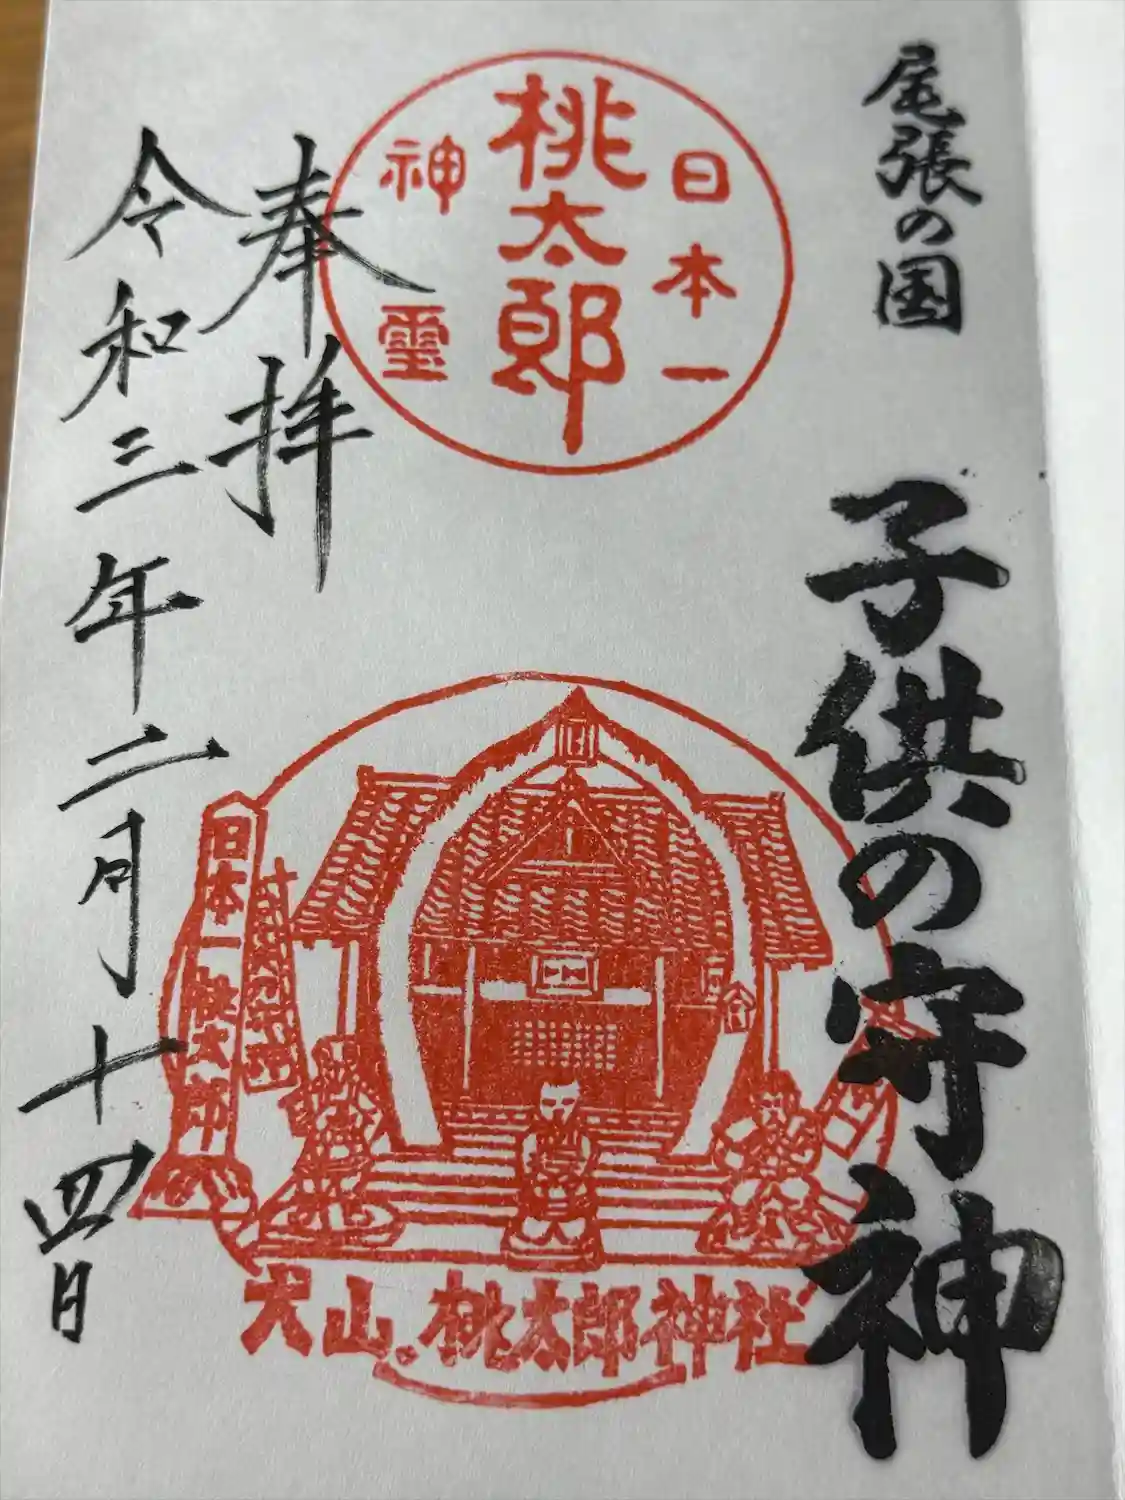 尾張の国
子供の守神
日本一
桃太郎
神霊
奉拝
令和三年二月十四日
日本一桃太郎
犬山桃太郎神社